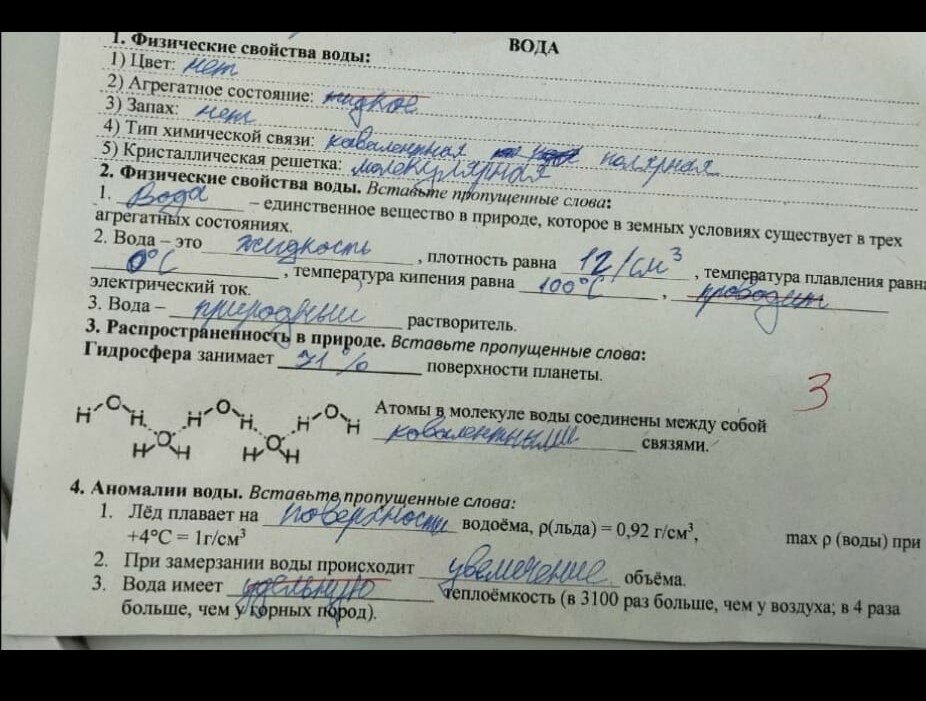 ВОДА
1. Физические свойства воды:
1) Цвет: нет
2) Агрегатное состояние: жидкое
3) Запах: нет
4) Тип химической связи: ковалентная полярная
5) Кристаллическая решетка: молекулярная
2. Физические свойства воды. Вставьте пропущенные слова:
1. Вода – единственное вещество в природе, которое в земных условиях существует в трех
агрегатных состояниях.
2. Вода – это жидкость, плотность равна 1г/см³, температура плавления равна
0°C, температура кипения равна 100°C, проводит
электрический ток.
3. Вода – природный растворитель.
3. Распространенность в природе. Вставьте пропущенные слова:
Гидросфера занимает 71% поверхности планеты.
3
H O H H O H H O H
H O H H O H
Атомы в молекуле воды соединены между собой
ковалентными связями.
4. Аномалии воды. Вставьте пропущенные слова:
1. Лёд плавает на поверхности водоёма, ρ(льда) = 0,92 г/см³, max ρ (воды) при
+4°C = 1г/см³
2. При замерзании воды происходит увеличение объёма.
3. Вода имеет удельную теплоёмкость (в 3100 раз больше, чем у воздуха; в 4 раза
больше, чем у горных пород).